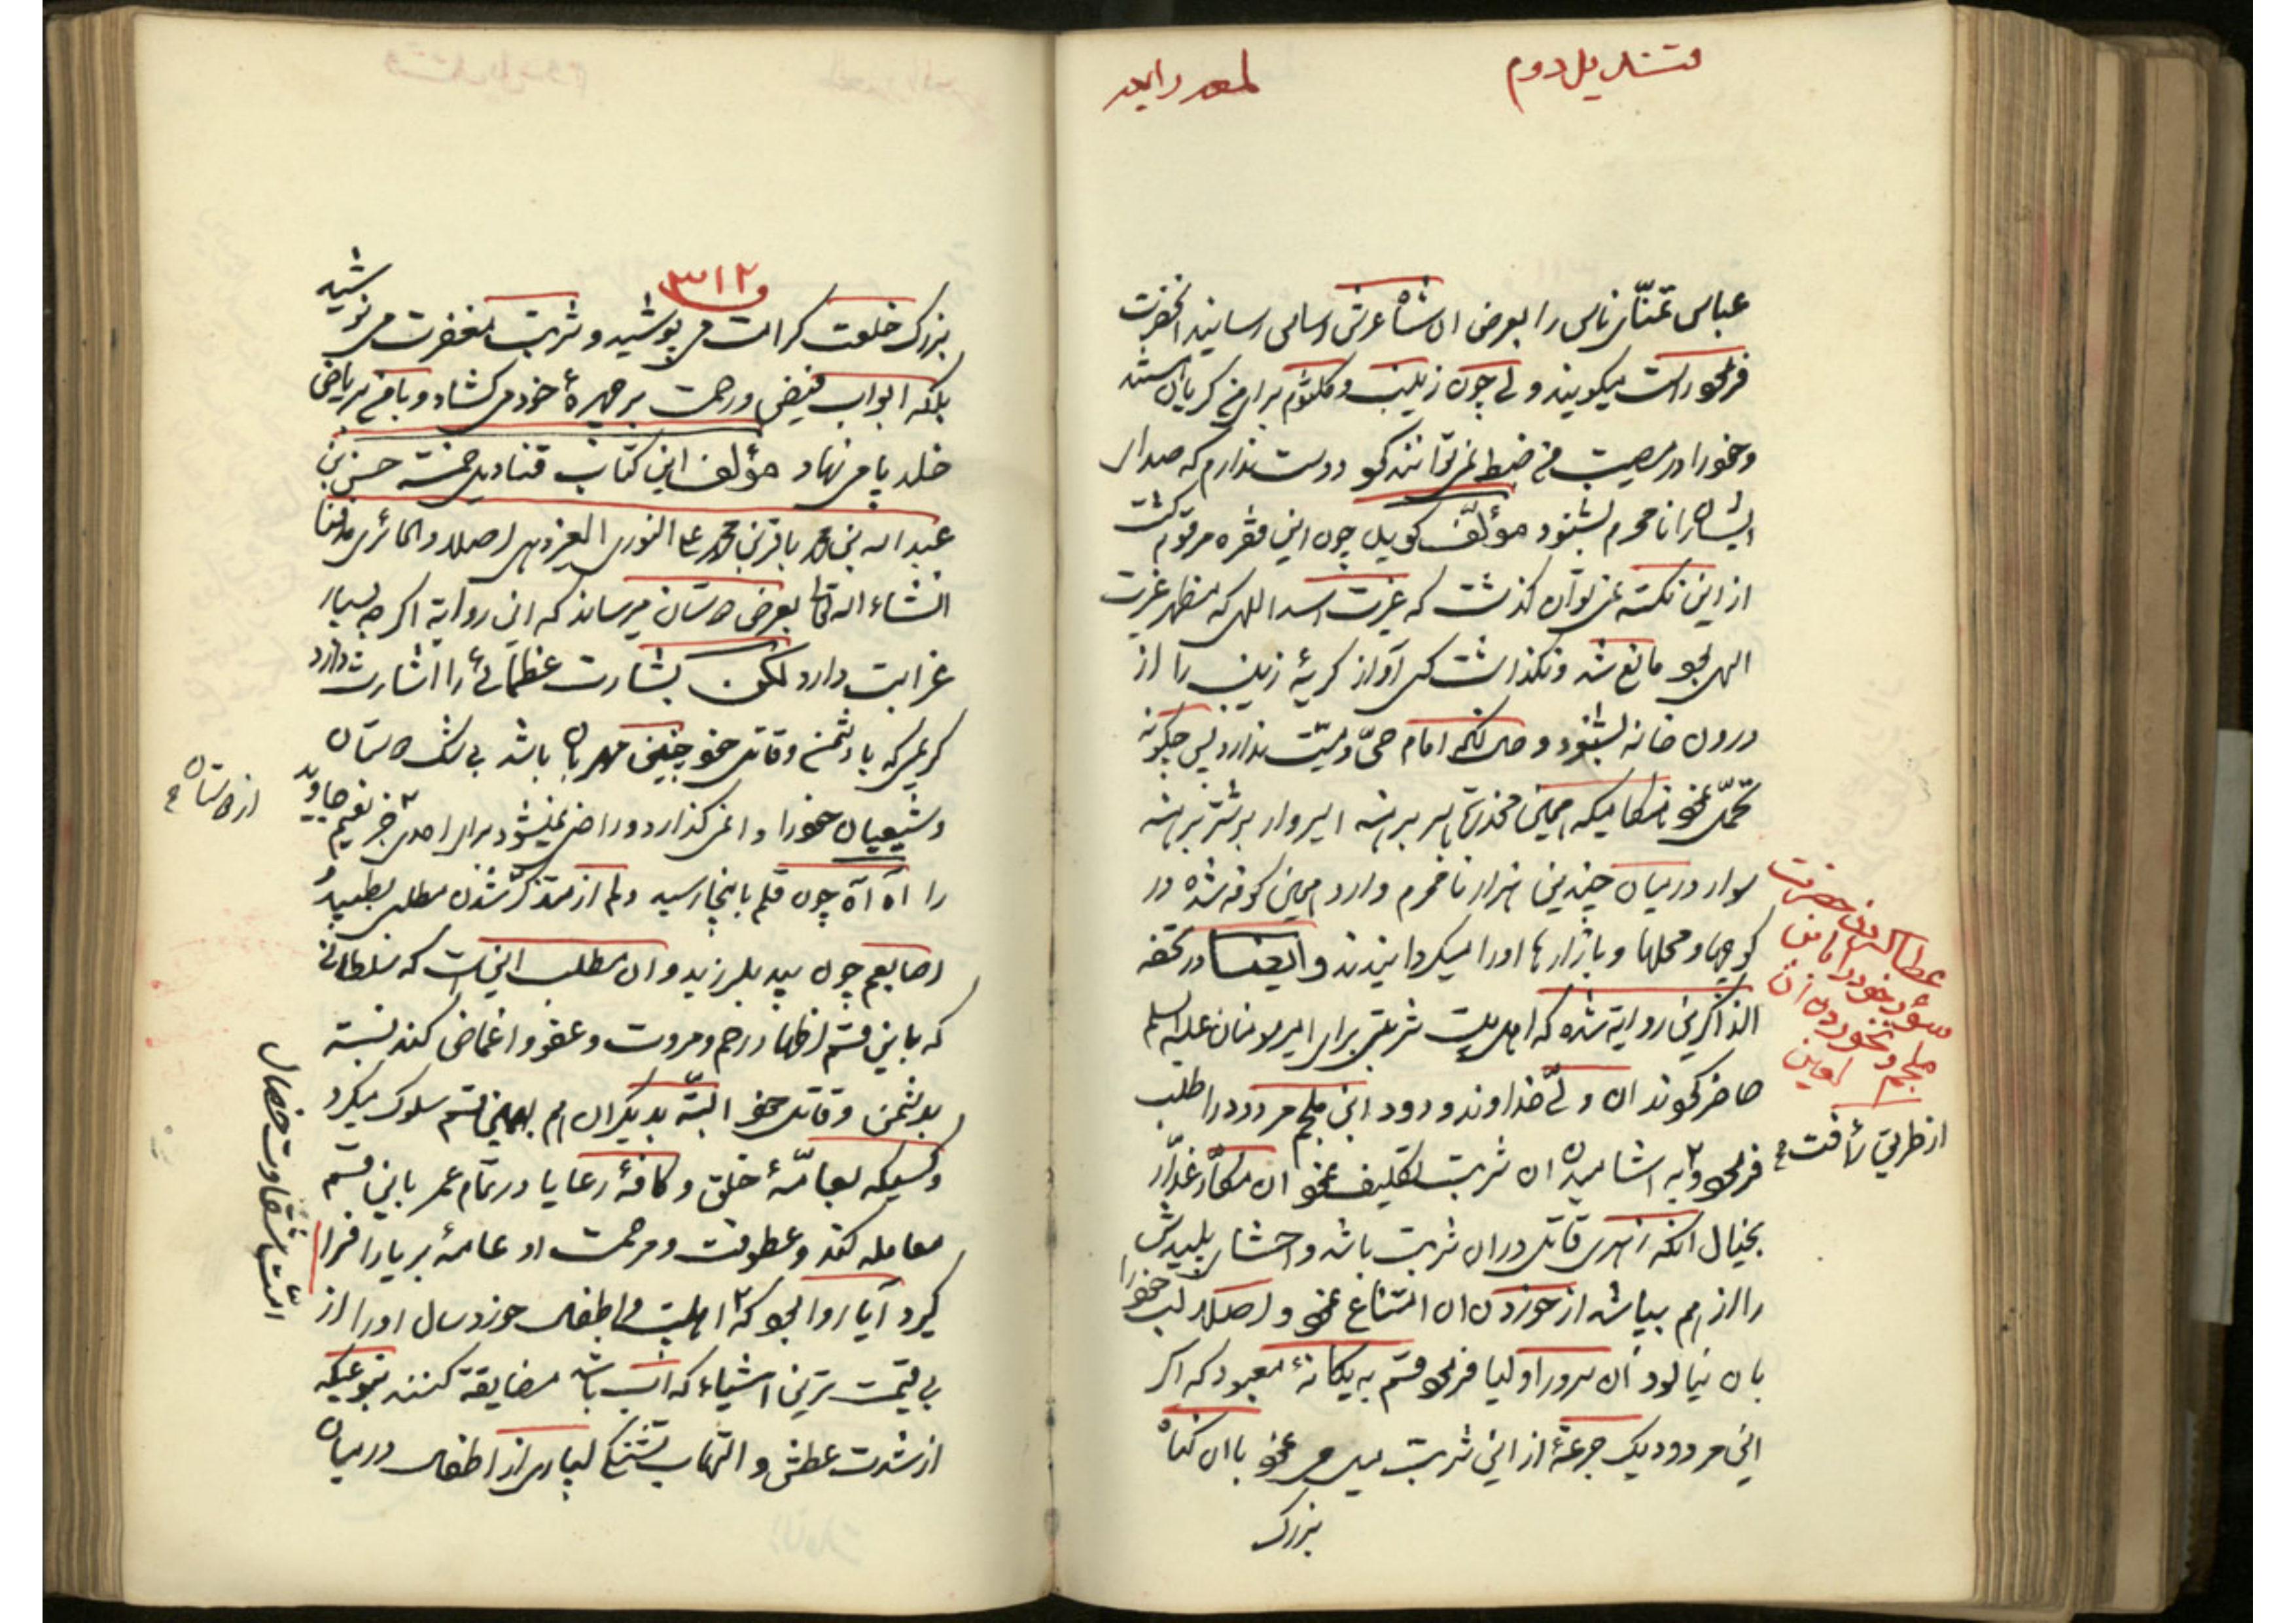 قندیل دوم
لمعه رابعه
عباس تمنّای ناس را بعرض ان شاه عرش اساس رسانید انحضرت
فرمود راست میکویند ولی چون زینب و کلثوم برای من کریان هستند
و خود را در مصیبت من ضبط نمی توانند نمود دوست ندارم که صدای
ایشان را نامحرم بشنود مؤلّف کوید چون این فقره مرقوم کشت
از این نکته نمی توان کذشت که غیرت اسد اللهی که مظهر غیرت
الهی بود مانع شد و نکذاشت کسی آواز کریهٔ زینب را از
درون خانه بشنود و حال انکه امام حیّ و میّت ندارد پس چکونه
تحمّل نمود هنکامیکه همین مخدّره با سر برهنه اسیر وار بر شتر برهنه
سوار در میان چندین هزار نامحرم وارد همین کوفه شده در
کوچها و محلها و بازارها او را میکردانیدند و ایضا در تحفه
الذاکرین روایة شده که اهلبیت شربتی برای امیر مومنان علیه السلم
حاضر نمودند ان ولیّ خداوند ودود ابن ملجم مردود را طلب
فرمود و به اشامیدن ان شربت تکلیف نمود ان مکّار غدّار
بخیال انکه زهری قاتل در ان شربت باشد و احشای پلیدش
را از هم بپاشد از خوردن ان امتناع نمود و اصلا لب خود را
بان نیالود ان سرور اولیا فرمود قسم به یکانهٔ معبود که اکر
این مردود یک جرعهٔ از این شربت میل می نمود با ان کناه
بزرک
عطا کردن حضرت
سؤر خود را بابن
ملجم و نخوردن ان
لعین
از طریق رأفت
۳۱۲
بزرک خلعت کرامت می پوشید و شربت مغفرت می نوشید
بلکه ابواب فیض و رحمت بر چهرهٔ خود می کشاد و با من بریاض
خلد پا می نهاد مؤلف این کتاب قنادیل خمسه حسن بن
عبد الله بن محمد باقر بن محمد علی النوری الیزدی اصلا و الحائری مدفنا
انشاء الله تعالی بعرض دوستان میرساند که این روایة اکر چه بسیار
غرابت دارد لکن بشارت عظمائی را اشارت دارد
کریمی که با دشمن و قاتل خود چنین مهربان باشد بی شک دوستان
و شیعیان خود را وا نمی کذارد و راضی نمیشود برای احدی جز نعیم جاوید
را اه آه چون قلم باینجا رسید دلم از متذکّر شدن مطلبی بطپید و
اصابعم چون بید بلرزید و ان مطلب اینست که سلطانی
که باین قسم اظهار رحم و مروت و عفو و اغماض کند نسبة
بدشمن و قاتل خود البتّه بدیکران هم بهمین قسم سلوک میکرد
و کسیکه بعامّهٔ خلق و کافهٔ رعایا در تمام عمر باین قسم
معامله کند و عطوفت و مرحمت او عامهٔ برایا را فرا
کیرد آیا روا بود که اهلبیت و اطفال خورد سال او را از
بی قیمت ترین اشیاء که آب باشد مضایقة کنند بنوعیکه
از شدت عطش و التهاب تشنکی بسیاری از اطفال در میان
از دوستان
امّت شقاوت خصال